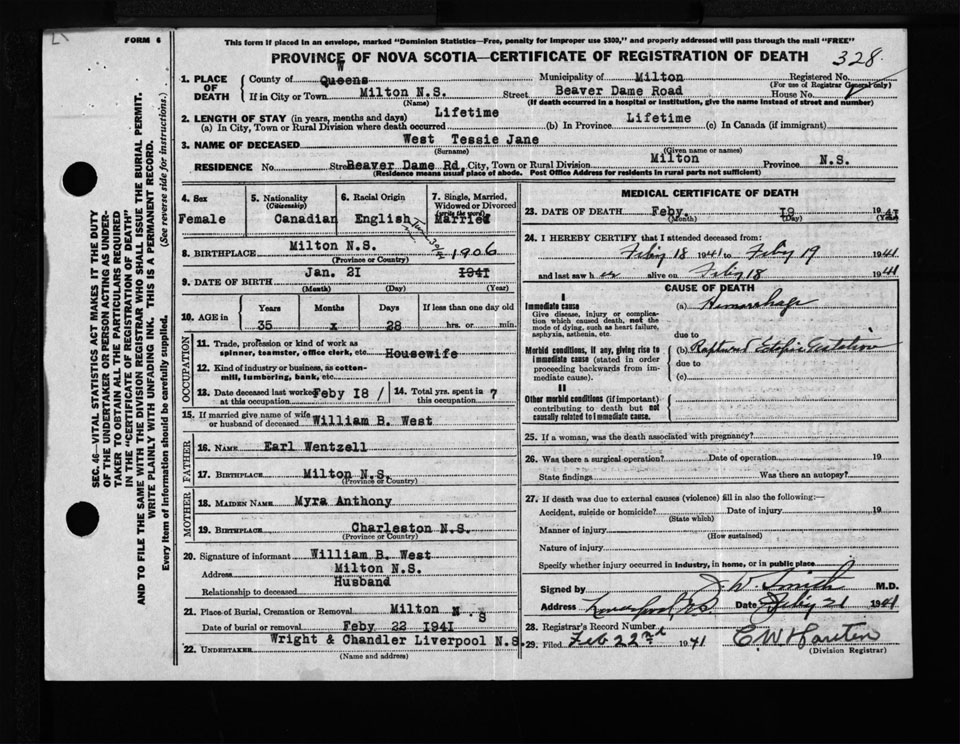 FORM 6
This form if placed in an envelope, marked "Dominion Statistics—Free, penalty for improper use $300," and properly addressed will pass through the mail "FREE"
PROVINCE OF NOVA SCOTIA—CERTIFICATE OF REGISTRATION OF DEATH
328
SEC. 46—VITAL STATISTICS ACT MAKES IT THE DUTY
OF THE UNDERTAKER OR PERSON ACTING AS UNDER-
TAKER TO OBTAIN ALL THE PARTICULARS REQUIRED
IN THE "CERTIFICATE OF REGISTRATION OF DEATH"
AND TO FILE THE SAME WITH THE DIVISION REGISTRAR WHO SHALL ISSUE THE BURIAL PERMIT.
WRITE PLAINLY WITH UNFADING INK. THIS IS A PERMANENT RECORD.
Every item of Information should be carefully supplied. (See reverse side for instructions.)
1. PLACE OF DEATH
County of Queens Municipality of Milton Registered No.
(For use of Registrar General only)
If in City or Town Milton N.S. Street Beaver Dame Road House No.
(Name) (If death occurred in a hospital or institution, give the name instead of street and number)
2. LENGTH OF STAY (in years, months and days)
(a) In City, Town or Rural Division where death occurred Lifetime (b) In Province Lifetime (c) In Canada (if immigrant)
3. NAME OF DECEASED West Tessie Jane
(Surname) (Given name or names)
RESIDENCE No. Street Beaver Dame Rd, City, Town or Rural Division Milton Province N.S.
(Residence means usual place of abode. Post Office Address for residents in rural parts not sufficient)
4. Sex Female
5. Nationality (Citizenship) Canadian
6. Racial Origin English
7. Single, Married, Widowed or Divorced (write the word) Married
8. BIRTHPLACE Milton N.S.
(Province or Country)
9. DATE OF BIRTH Jan. 21 1941 1906
(Month) (Day) (Year)
10. AGE in Years 35 Months x Days 28 If less than one day old hrs. or min.
OCCUPATION
11. Trade, profession or kind of work as spinner, teamster, office clerk, etc. Housewife
12. Kind of industry or business, as cotton-mill, lumbering, bank, etc.
13. Date deceased last worked at this occupation Feby 18
14. Total yrs. spent in this occupation 7
15. If married give name of wife or husband of deceased William B. West
FATHER
16. NAME Earl Wentzell
17. BIRTHPLACE Milton N.S.
(Province or Country)
MOTHER
18. MAIDEN NAME Myra Anthony
19. BIRTHPLACE Charleston N.S.
(Province or Country)
20. Signature of informant William B. West
Address Milton N.S.
Relationship to deceased Husband
21. Place of Burial, Cremation or Removal Milton N.S
Date of burial or removal Feby 22 1941
22. UNDERTAKER Wright & Chandler Liverpool N.S.
(Name and address)
MEDICAL CERTIFICATE OF DEATH
23. DATE OF DEATH Feby. 19 1941
(Month) (Day) (Year)
24. I HEREBY CERTIFY that I attended deceased from:
Feby 18 1941 to Feby 19 1941
and last saw her alive on Feby 18 1941
CAUSE OF DEATH
I
Immediate cause
Give disease, injury or complication which caused death, not the mode of dying, such as heart failure, asphyxia, asthenia, etc.
(a) Hemorrhage
due to
Morbid conditions, if any, giving rise to immediate cause (stated in order proceeding backwards from immediate cause).
(b) Ruptured Ectopic Gestation
due to
(c)
II
Other morbid conditions (if important) contributing to death but not causally related to immediate cause.
25. If a woman, was the death associated with pregnancy?
26. Was there a surgical operation? Date of operation 19
State findings Was there an autopsy?
27. If death was due to external causes (violence) fill in also the following:—
Accident, suicide or homicide? Date of injury 19
(State which)
Manner of injury
(How sustained)
Nature of injury
Specify whether injury occurred in industry, in home, or in public place
Signed by J. W. Smith M.D.
Address Liverpool, N.S. Date Feby 21 1941
28. Registrar's Record Number
29. Filed Feb 22nd 1941
(Division Registrar)